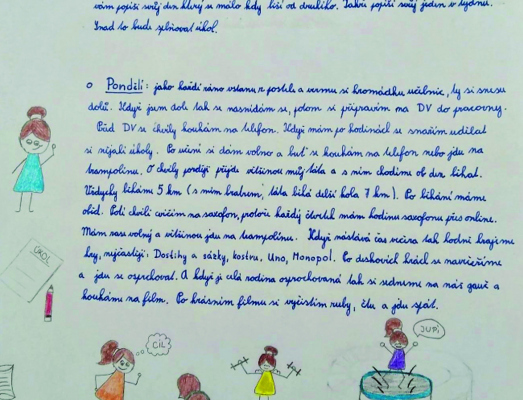 vám popíši svůj den který se málo kdy liší od druhého. Takže popíši svůj jeden v týdnu.
Snad to bude splňovat úkol.
o Pondělí: jako každé ráno vstanu z postele a vezmu si hromádku učebnic, ty si snesu
dolů. Když jsem dole tak se nasnídám se, potom si připravím na DV do pracovny.
Před DV se chvíly koukám na telefon. Když mám po hodinách se snažím udělat
si nějaké úkoly. Po učení si dám volno a buť se koukám na telefon nebo jdu na
trampolínu. O chvíly později přijde většinou můj táta a s ním chodíme ob den běhat.
Vždycky běháme 5 km (s ním bratrem, táta běhá delší kola 7 km). Po běhání máme
oběd. Poté chvíli cvičím na saxofon, protože každý čtvrtek mám hodinu saxofonu přes online.
Mám zase volný a většinou jdu na trampolínu. Když nastává čas večera tak hodně hrajeme
hry, nejčastěji: Dostihy a sázky, kostku, Uno, Monopol. Po deskových hrách se navečeříme
a jdu se osprchovat. A když je celá rodina osprchovaná tak si sedneme na náš gauč a
koukáme na film. Po krásném filmu si vyčistím zuby, čtu a jdu spát.
ÚKOL
CÍL
JUPÍ